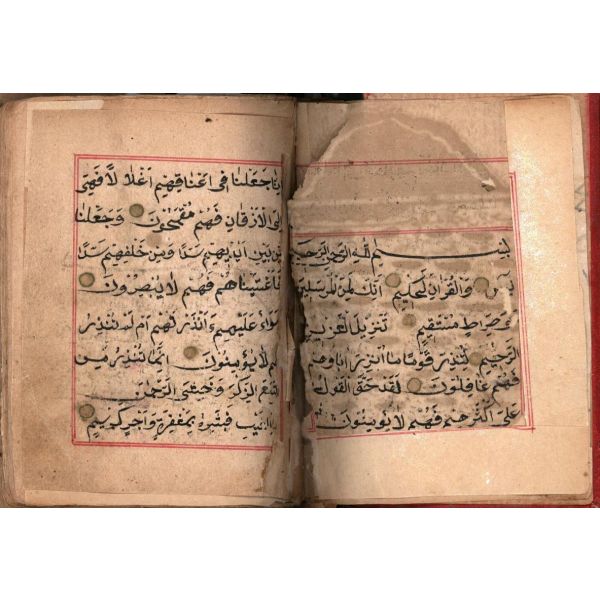 بسم الله الرحمن الرحيم
يس والقران الحكيم انك لمن المرسلين
على صراط مستقيم تنزيل العزيز
الرحيم لتنذر قوما ما انذر اباوهم
فهم غافلون لقد حق القول
على اكثرهم فهم لا يومنون
انا جعلنا في اعناقهم اغلالا فهي
الى الاذقان فهم مقمحون وجعلنا
من بين ايديهم سدا ومن خلفهم سدا
فاغشيناهم فهم لا يبصرون
وسواء عليهم ءانذرتهم ام لم تنذر
هم لا يومنون انما تنذر من
اتبع الذكر وخشي الرحمن
بالغيب فبشره بمغفرة واجر كريم